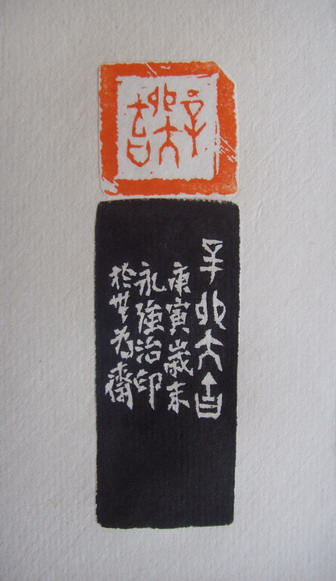 辛卯大吉
辛卯大吉
庚寅歲末
永強治印
於無為齋